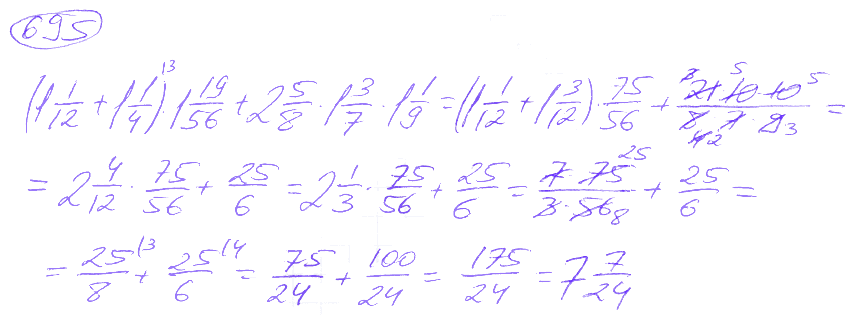 695
(1 1/12 + 1 1/4 \3) · 1 19/56 + 2 5/8 · 1 3/7 · 1 1/9 = (1 1/12 + 1 3/12) · 75/56 + 3 21 · 5 10 · 10 5 / 8 4 2 · 7 · 9 3 =
= 2 4/12 · 75/56 + 25/6 = 2 1/3 · 75/56 + 25/6 = 7 · 75 25 / 3 · 56 8 + 25/6 =
= 25/8 \3 + 25/6 \4 = 75/24 + 100/24 = 175/24 = 7 7/24